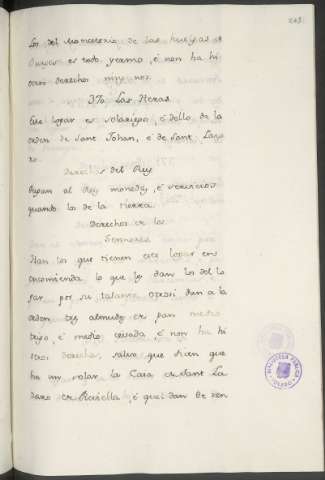 Los del Monesterio de las huelgas de
Burgos es todo yermo, é non ha hi
otros derechos
370 Las Heras
Este logar es solariego, é dello de la
orden de Sant Johan, é de Sant Laza
ro.
derechos del Rey
Pagan al Rey moneda, é servicios
quando los de la tierra
derechos de los
Sennores
Han los que tienen este logar en
encomienda lo que les dan los del lo
gar por su talante, otrosi dan a la
orden tres almudes de pan medio
trigo, é medio cevada, é non ha hi
otros derechos, salvo que dicen que
ha un solar la Casa de Sant La
zaro de é quel dan de